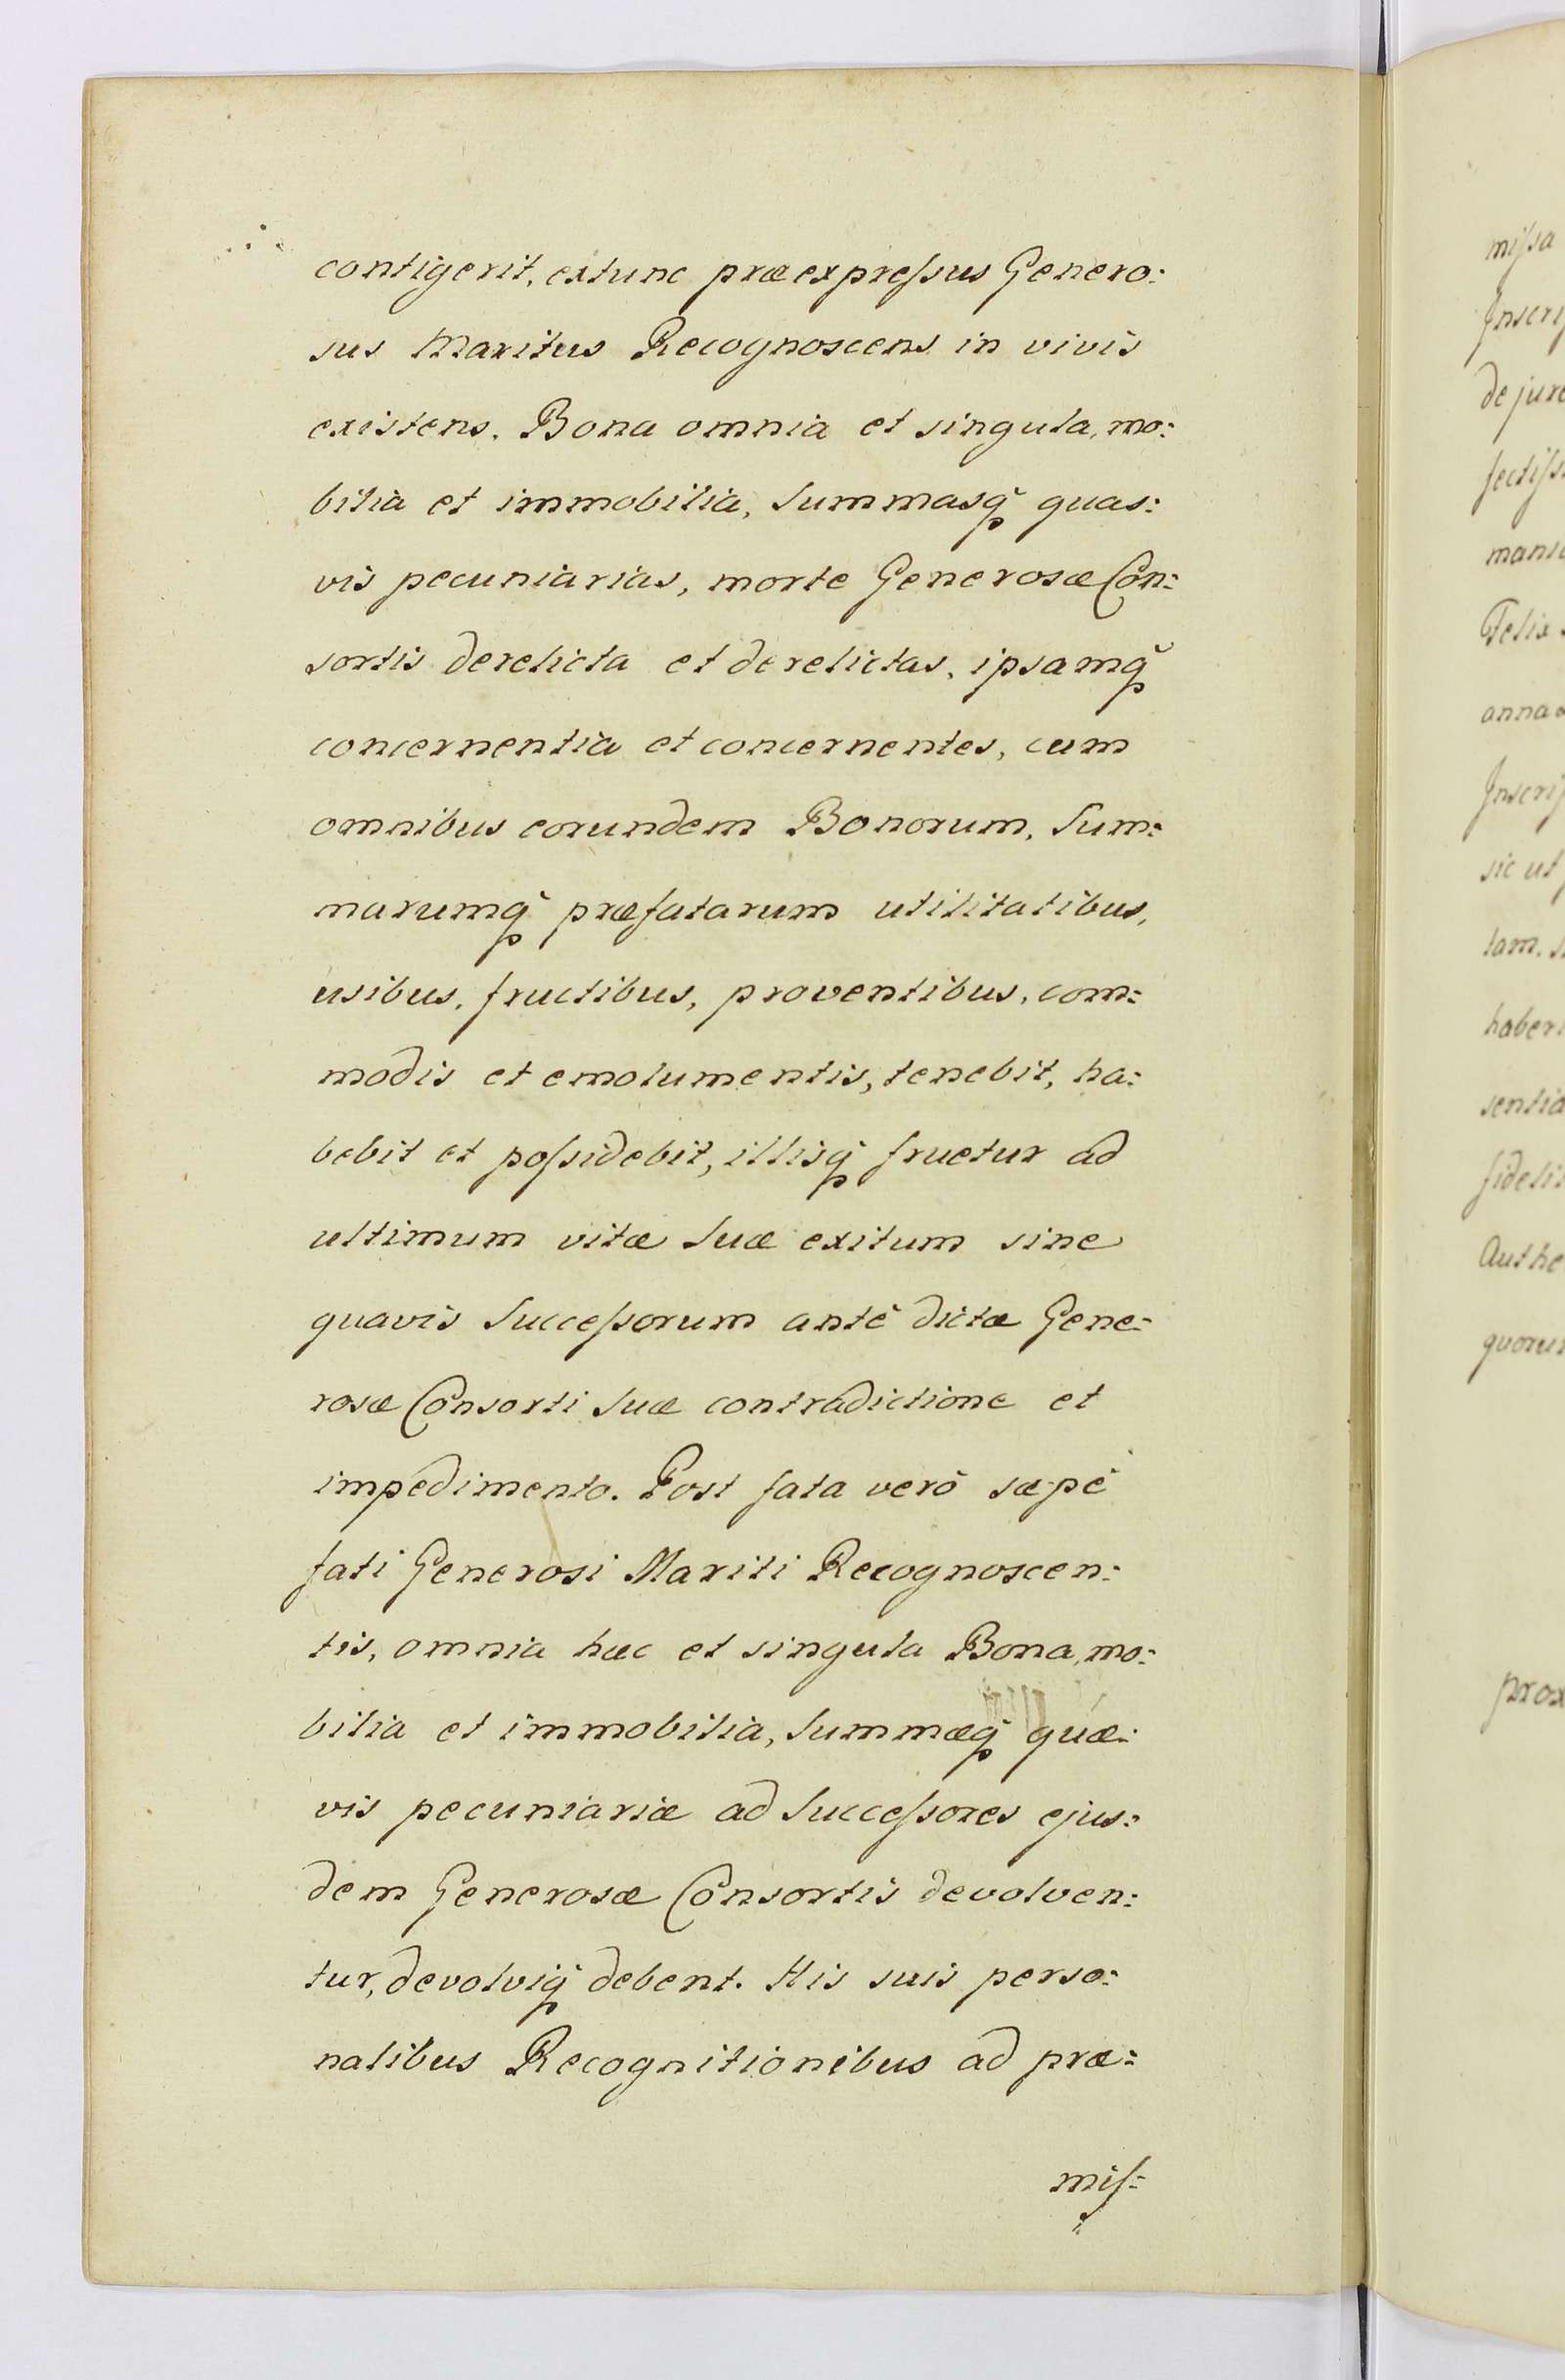 contigerit, extunc præexpreſsus Genero:
sus Maritus Recognoscens in vivis
existens. Bona omnia et singula, mo:
bilia et immobilia, Summasq̃ quas:
vis pecuniarias, morte Generosæ Con:
sortis derelicta et derelictas, ipsamq̃
concernentia et concernentes, cum
omnibus eorundem Bonorum, Sum:
marumq̃ præfatarum utilitatibus,
usibus, fructibus, proventibus, com:
modis et emolumentis, tenebit, ha:
bebit et poſsidebit, illisq̃ fruetur ad
ultimum vitæ Suæ exitum sine
quavis Succeſsorum antè dictæ Gene:
rosæ Consorti Suæ contradictione et
impedimento. Post fata verò sæpè
fati Generosi Mariti Recognoscen:
tis, omnia hæc et singula Bona, mo:
bilia et immobilia, Summæq̃ quæ:
vis pecuniariæ ad Succeſsores ejus:
dem Generosæ Consortis devolven:
tur, devolviq̃ debent. His suis perso:
nalibus Recognitionibus ad præ:
miſ:
miſsa
Inscrip
de jure
fectiſs
Felix
annæ
Inscrip
sic ut
tam. s
haber
sentia
fidelis
Authe
quorum
prox